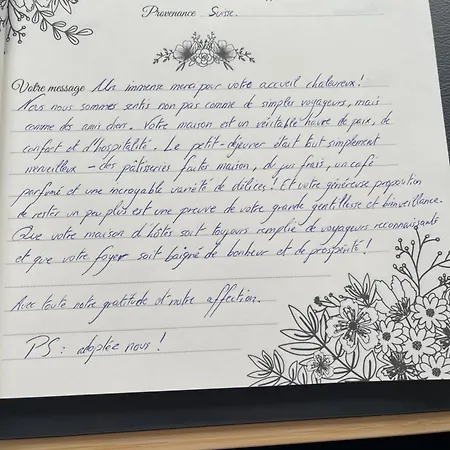 Provenance Suisse.
Votre message Un immense merci pour votre accueil chaleureux!
Nous nous sommes sentis non pas comme de simples voyageurs, mais
comme des amis chers. Votre maison est un véritable havre de paix, de
confort et d'hospitalité. Le petit-déjeuner était tout simplement
merveilleux - des pâtisseries faites maison, du jus frais, un café
parfumé et une incroyable variété de délices! Et votre généreuse proposition
de rester un peu plus est une preuve de votre grande gentillesse et bienveillance.
Que votre maison d'hôtes soit toujours remplie de voyageurs reconnaissants
et que votre foyer soit baigné de bonheur et de prospérité!
Avec toute notre gratitude et notre affection.
PS: adoptez nous!